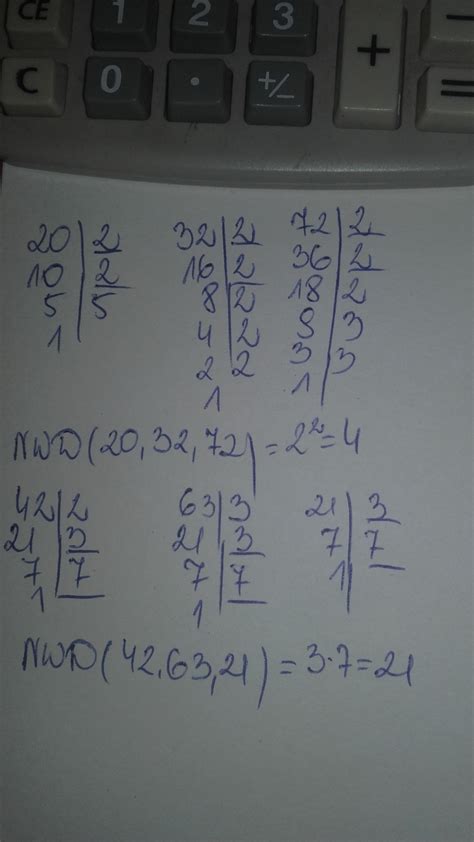 CE 1 2 3 + −
C 0 · +/− =
20 | 2 32 | 2 72 | 2
10 | 2 16 | 2 36 | 2
5 | 5 8 | 2 18 | 2
1 | 4 | 2 9 | 3
2 | 2 3 | 3
1 | 1 |
NWD(20,32,72) = 2² = 4
42 | 2 63 | 3 21 | 3
21 | 3 21 | 3 7 | 7
7 | 7 7 | 7 1 |
1 | 1 |
NWD(42,63,21) = 3·7 = 21